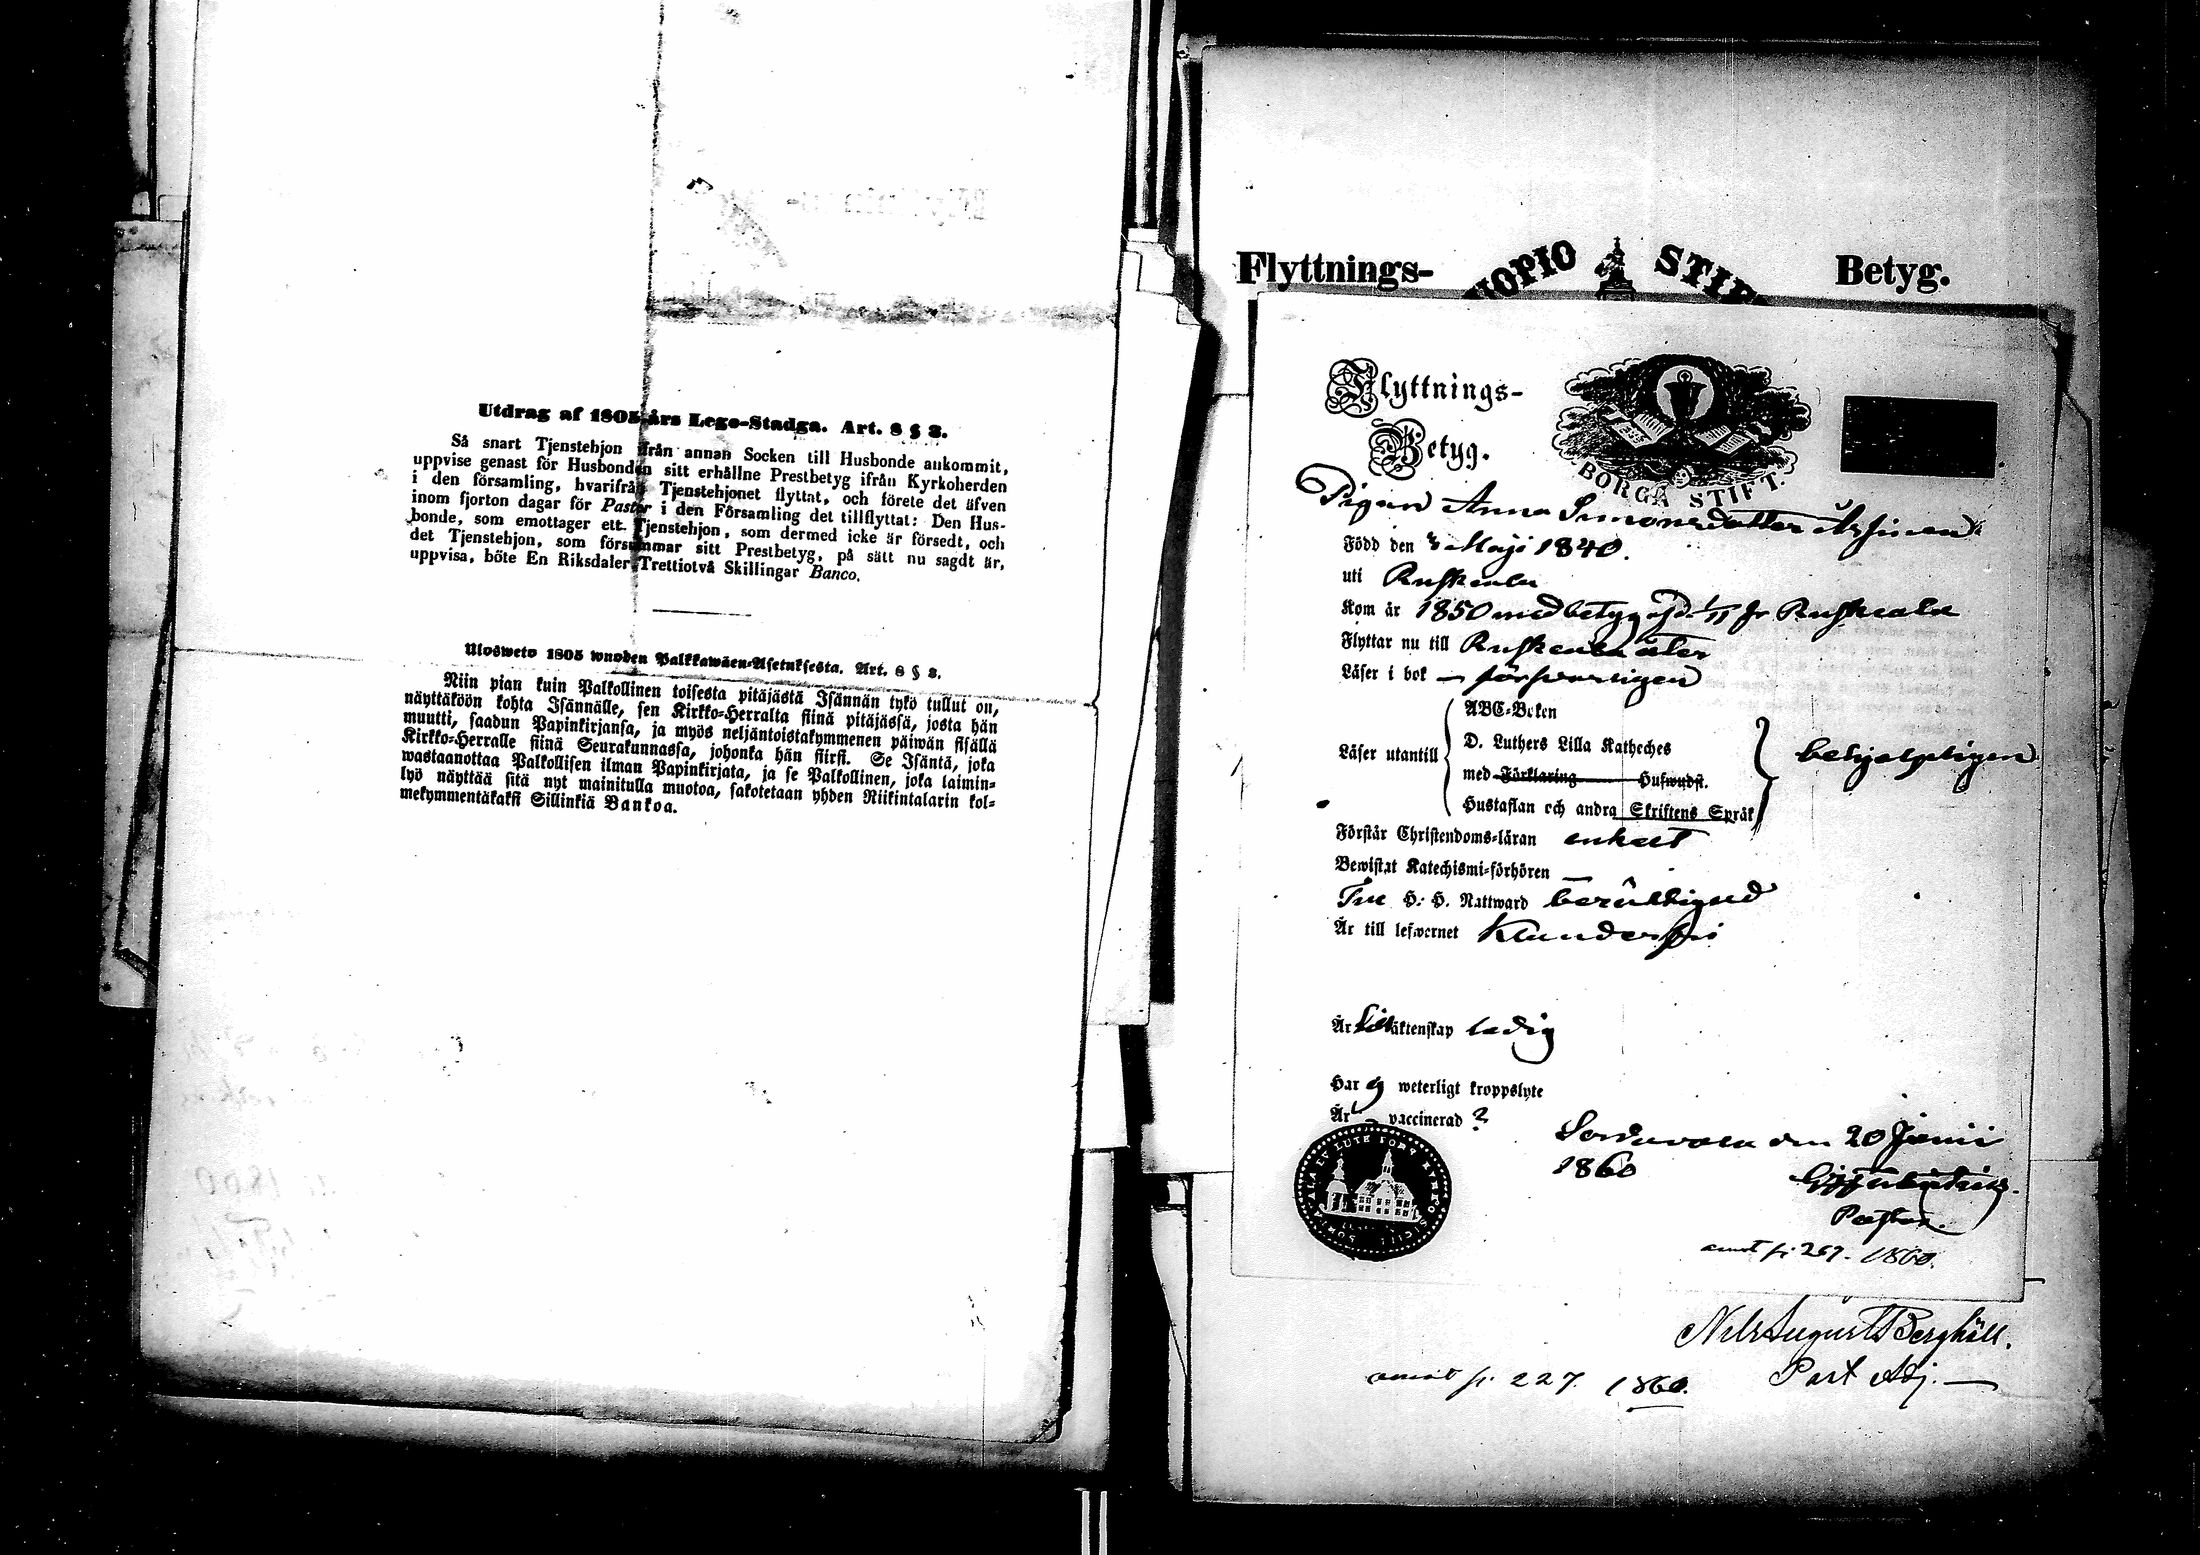 Utdrag af 1805 års Lego-Stadga. Art. 8 § 3.
Så snart Tjenstehjon ifrån annan Socken till Husbonde ankommit,
uppvise genast för Husbonden sitt erhållne Prestbetyg ifrån Kyrkoherden
i den församling, hvarifrån Tjenstehjonet flyttat, och förete det äfven
inom fjorton dagar för Pastor i den Församling det tillflyttat: Den Hus-
bonde, som emottager ett Tjenstehjon, som dermed icke är försedt, och
det Tjenstehjon, som försummar sitt Prestbetyg, på sätt nu sagdt är,
uppvisa, böte En Riksdaler Trettiotvå Skillingar Banco.
Ulosweto 1805 wuoden Palkkawäen-Asetuksesta. Art. 8 § 3.
Niin pian kuin Palkollinen toisesta pitäjästä Isännän tykö tullut on,
näyttäköön kohta Isännälle, sen Kirkko-Herralta siinä pitäjässä, josta hän
muutti, saadun Papinkirjansa, ja myös neljäntoistakymmenen päiwän sisällä
Kirkko-Herralle siinä Seurakunnassa, johonka hän siirsi. Se Isäntä, joka
wastaanottaa Palkollisen ilman Papinkirjata, ja se Palkollinen, joka laimin-
lyö näyttää sitä nyt mainitulla muotoa, sakotetaan yhden Riikintalarin kol-
mekymmentäkaksi Sillinkiä Bankoa.
Flyttnings- UOPIO STIF Betyg.
Flyttnings-
Betyg.
BORGÅ STIFT.
Pigan Anna Simonsdotter
Född den 8 Maji 1840.
uti Ruskeala
Kom år 1850 med betyg af d. 1/11 fr Ruskeala
Flyttar nu till Ruskeala åter
Läser i bok — försvarligen
ABC-Boken
Läser utantill D. Luthers Lilla Katheches
med Förklaring Hufwudst.
Hustaflan och andra Skriftens Språk
behjelpligen
Förstår Christendoms-läran enkelt
Bewistat Katechismi-förhören —
Till H. H. Nattward berättigad
Är till lefwernet klanderfri
Är till äktenskap ledig
Har ej weterligt kroppslyte
Är vaccinerad ?
Sordavala den 20 Junii
1860
Pastor.
annot p. 267. 1860.
Nils August Berghäll.
Past Adj. —
annot p. 227. 1860.